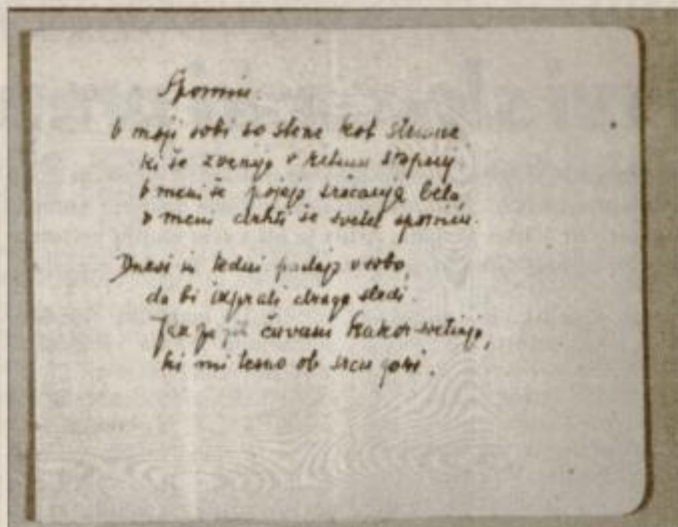 Spomin.
V moji sobi so stene kot strune
ki še zvenijo v ritmu stopinj
v meni še pojejo srečanja bela,
v meni drhti še svetel spomin.
Dnevi in tedni padajo v sobo,
da bi izprali drage sledi.
Jaz pa jih čuvam kakor svetinjo,
ki mi tesno ob srcu gori.